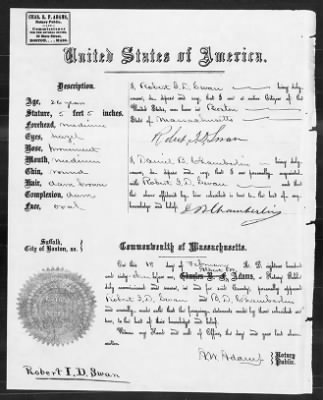 CHAS. R. F. ADAMS,
Notary Public.
COMMISSIONER
BOSTON, MASS.
United States of America.
Description.
Age, 26 years
Stature, 5 feet 5 inches.
Forehead, medium
Eyes, hazel
Nose, prominent
Mouth, medium
Chin, round
Hair, dark brown
Complexion, dark
Face, oval
I Robert I. D. Swan being duly
sworn, do depose and say, that I am a native Citizen of the
United States, was born in
State of Massachusetts
Robert I. D. Swan
I Daniel B. Chamberlin being duly
sworn, do depose and say, that I am personally acquainted
with Robert I. D. Swan and that
the above affidavit by him subscribed is true to the best of my
knowledge and belief.
D. B. Chamberlin
Suffolk,
City of Boston, ss.
Commonwealth of Massachusetts.
On the day of February A. D. eighteen hundred
and sixty before me, Charles R. F. Adams, a Notary Public
duly commissioned and sworn, in and for said County, personally appeared
Robert I. D. Swan and D. B. Chamberlin
and severally made oath that the foregoing statements made by them
are true, to the best of their knowledge and belief.
Witness my Hand and Seal of Office, the day and year last above
written.
Adams Notary
Public.
Robert I. D. Swan